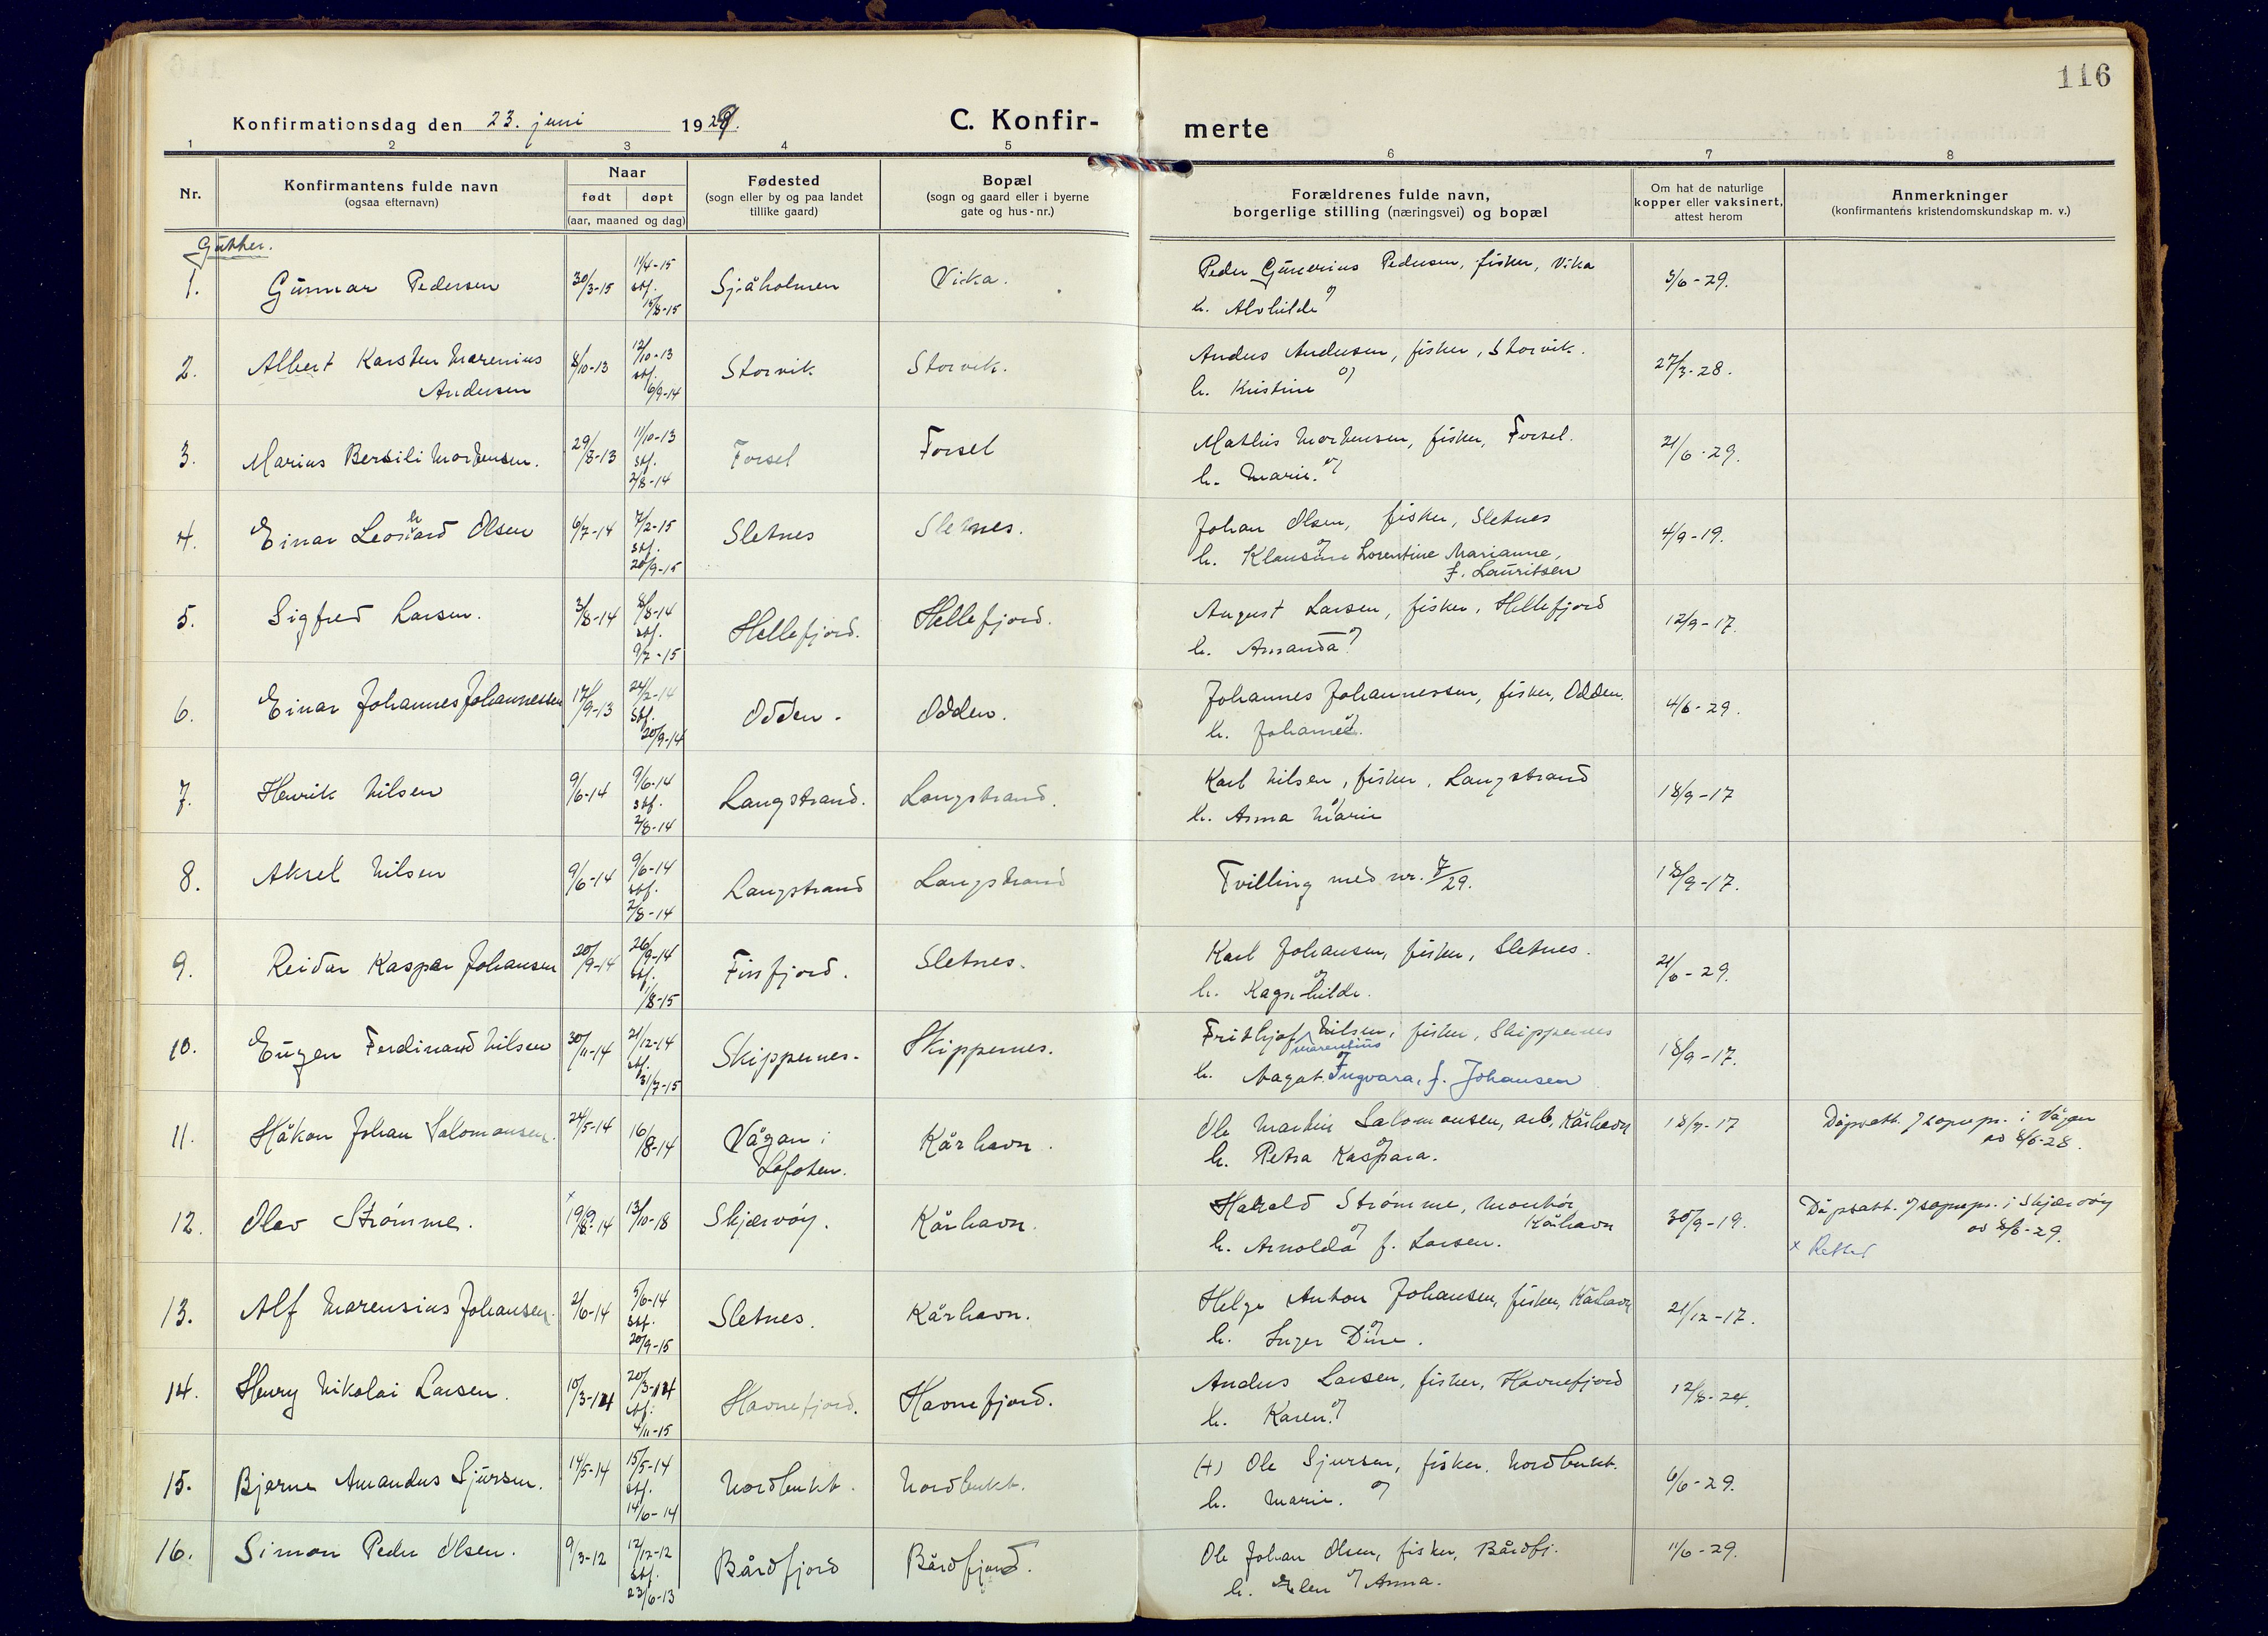 116
Konfirmationsdag den 23. juni 1929.
C. Konfir-
merte
1 2 3 4 5 6 7 8
Nr.
Konfirmantens fulde navn
(ogsaa efternavn)
Naar
født døpt
(aar, maaned og dag)
Fødested
(sogn eller by og paa landet
tillike gaard)
Bopæl
(sogn og gaard eller i byerne
gate og hus-nr.)
Forældrenes fulde navn,
borgerlige stilling (næringsvei) og bopæl
Om hat de naturlige
kopper eller vaksinert,
attest herom
Anmerkninger
(konfirmantens kristendomskundskap m. v.)
Gutter.
1. Gunnar Pedersen 30/3-15 11/4-15 stf. 15/8-15 Sjåholmen Vika. Peder Gunerius Pedersen, fisker, Vika 5/6-29.
og h. Alvhilde
2. Albert Karsten Marenius 8/10-13 12/10-13 stf. 6/9-14 Storvik Storvik. Anders Andersen, fisker, Storvik. 27/3-28.
Andersen og h. Kristine
3. Marius Bersili Mortensen. 29/8-13 11/10-13 stf. 2/8-14 Forsel Forsel Mathis Mortensen, fisker, Forsel. 21/6-29.
og h. Marie.
4. Einar Leonhard Olsen 6/7-14 7/2-15 stf. 20/9-15 Sletnes Sletnes. Johan Olsen, fisker, Sletnes 4/9-19.
og h. Klausine Lorentine Marianne,
f. Lauritsen
5. Sigfred Larsen. 3/8-14 8/8-14 stf. 9/7-15 Hellefjord. Hellefjord. August Larsen, fisker, Hellefjord 12/9-17.
og h. Amanda
6. Einar Johannes Johannessen 17/9-13 24/2-14 stf. 20/9-14 Odden. Odden. Johannes Johannessen, fisker, Odden. 4/6-29.
og h. Johanne.
7. Henrik Nilsen 9/6-14 9/6-14 stf. 2/8-14 Langstrand. Langstrand. Karl Nilsen, fisker, Langstrand 18/9-17
og h. Anna Marie
8. Aksel Nilsen 9/6-14 9/6-14 stf. 2/8-14 Langstrand Langstrand Tvilling med nr. 7/29. 18/9-17.
9. Reidar Kaspar Johansen 20/9-14 26/9-14 stf. 1/8-15 Finfjord. Sletnes. Karl Johansen, fisker, Sletnes. 21/6-29.
og h. Ragnhilde.
10. Eugen Ferdinand Nilsen 30/11-14 21/12-14 stf. 31/7-15 Skippernes. Skippernes. Fridthjof Marentius Nilsen, fisker, Skippernes 18/9-17.
og h. Aagot Ingvara, f. Johansen
11. Håkon Johan Salomonsen. 24/5-14 16/8-14 Vågan i Kårhavn. Ole Martin Salomonsen, arb, Kårhavn 18/9-17 Dåpsatt. fra sognepr. i Vågan
Lofoten. og h. Petra Kaspara. av 8/6-28.
12. Olav Strømme. x 19/8-14 13/10-18 Skjærvøy. Kårhavn. Harald Strømme, montør, 30/9-19. Dåpsatt. fra sognepr. i Skjærvøy
Kårhavn av 8/6-29.
og h. Arnolda f. Larsen. x Rettet
13. Alf Marensius Johansen. 2/6-14 5/6-14 stf. 20/9-15 Sletnes. Kårhavn. Helge Anton Johansen, fisker, Kårhavn 21/12-17.
og h. Inger Dine.
14. Henry Nikolai Larsen. 10/3-14 20/3-14 stf. 4/11-15 Havnefjord. Havnefjord. Anders Larsen, fisker, Havnefjord 12/8-24.
og h. Karen.
15. Bjarne Amandus Sjursen. 14/5-14 15/5-14 stf. 14/6-14 Nordbukt. Nordbukt. (+) Ole Sjursen, fisker, Nordbukt. 6/6-29.
og h. Marie.
16. Simon Peder Olsen. 9/3-12 12/12-12 stf. 23/6-13 Bårdfjord Bårdfjord. Ole Johan Olsen, fisker, Bårdfj. 11/6-29.
og h. Elen Anna.